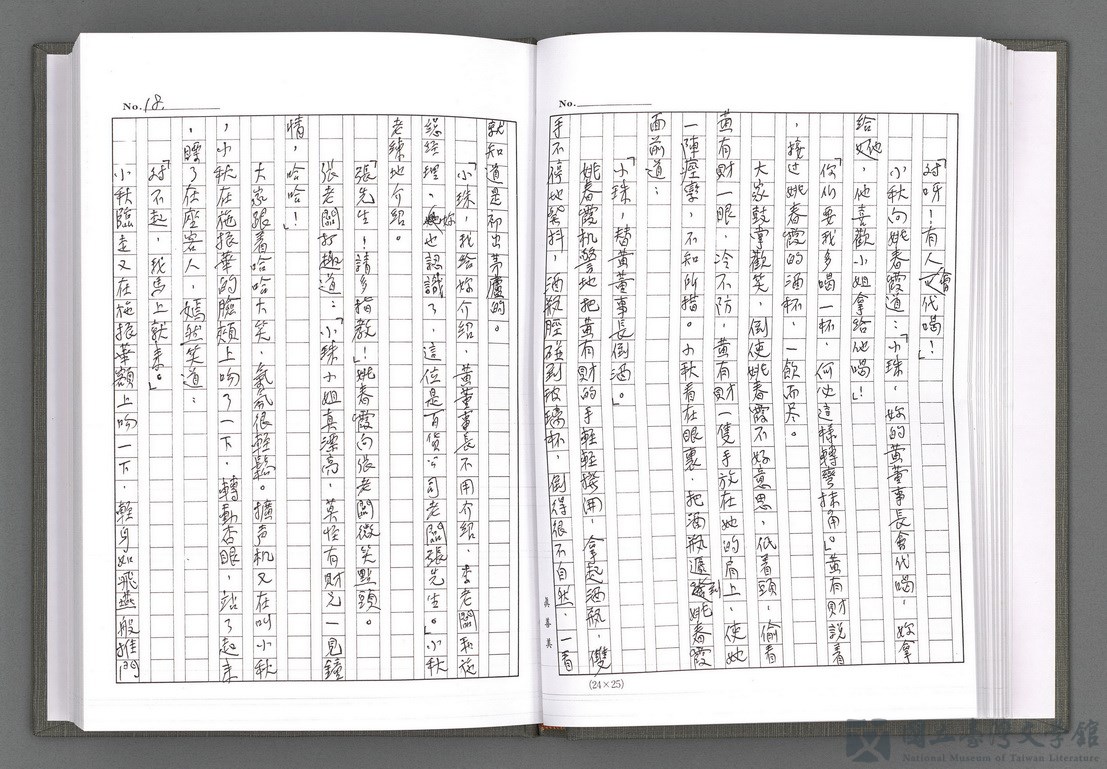 No.
「対呀！有人會代喝！」
小秋向姚春霞道：「小珠，妳的黃董事長會代喝，妳拿
給他，他喜歡小姐拿給他喝！」
「你們要我多喝一杯，何必這樣轉彎抹角。」黃有財說着
，接过姚春霞的酒杯，一飲而尽。
大家鼓掌歡笑，倒使姚春霞不好意思，低着頭，偷看
黃有財一眼，冷不防，黃有財一隻手放在她的肩上，使她
一陣痙攣，不知所措。小秋看在眼裏，把酒瓶遞到姚春霞
面前道：
「小珠，替黃董事長倒酒。」
姚春霞机警地把黃有財的手輕輕撥開，拿起酒瓶，雙
手不停地顫抖，酒瓶脛碰到玻璃杯，倒得很不自然，一看
(24×25)
No. 18
就知道是初出茅廬的。
「小珠，我給妳介紹，黃董事長不用介紹，李老闆和施
總經理，妳也認識了，這位是百貨公司老闆張先生。」小秋
老練地介紹。
「張先生！請多指教！」姚春霞向張老闆微笑點頭。
張老闆打趣道：「小珠小姐真漂亮，莫怪有財兄一見鐘
情，哈哈！」
大家跟着哈哈大笑，氣氛很輕鬆。擴声机又在叫小秋
，小秋在施振華的臉頰上吻了一下，轉動杏眼，站了起来
，瞟了在座客人，嫣然笑道：
「対不起，我馬上就来。」
小秋臨走又在施振華額上吻一下，輕身如飛燕般推門
國立臺灣文學館
National Museum of Taiwan Literature